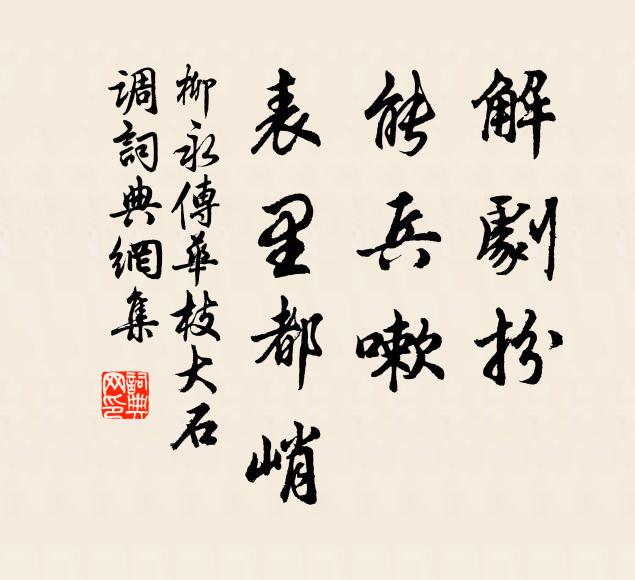 解劇扮
能兵嗽
表里都峭
柳永傳華枝大石
调詞典網集
詞典網印